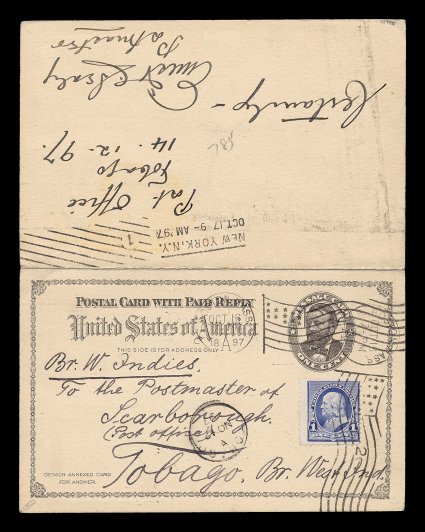 Post Office
Tobago
14. 12. 97.
Certainly –
Postmaster
NEW YORK, N.Y.
OCT. 17 9 - AM '97
1
POSTAL CARD WITH PAID REPLY
United States of America
THIS SIDE FOR ADDRESS ONLY
ONE CENT
OCT 16
97
1
Br. W. Indies.
To the Postmaster of
Scarborough.
(Post office)
Tobago. Br. West Ind.
DETACH ANNEXED CARD
FOR ANSWER.